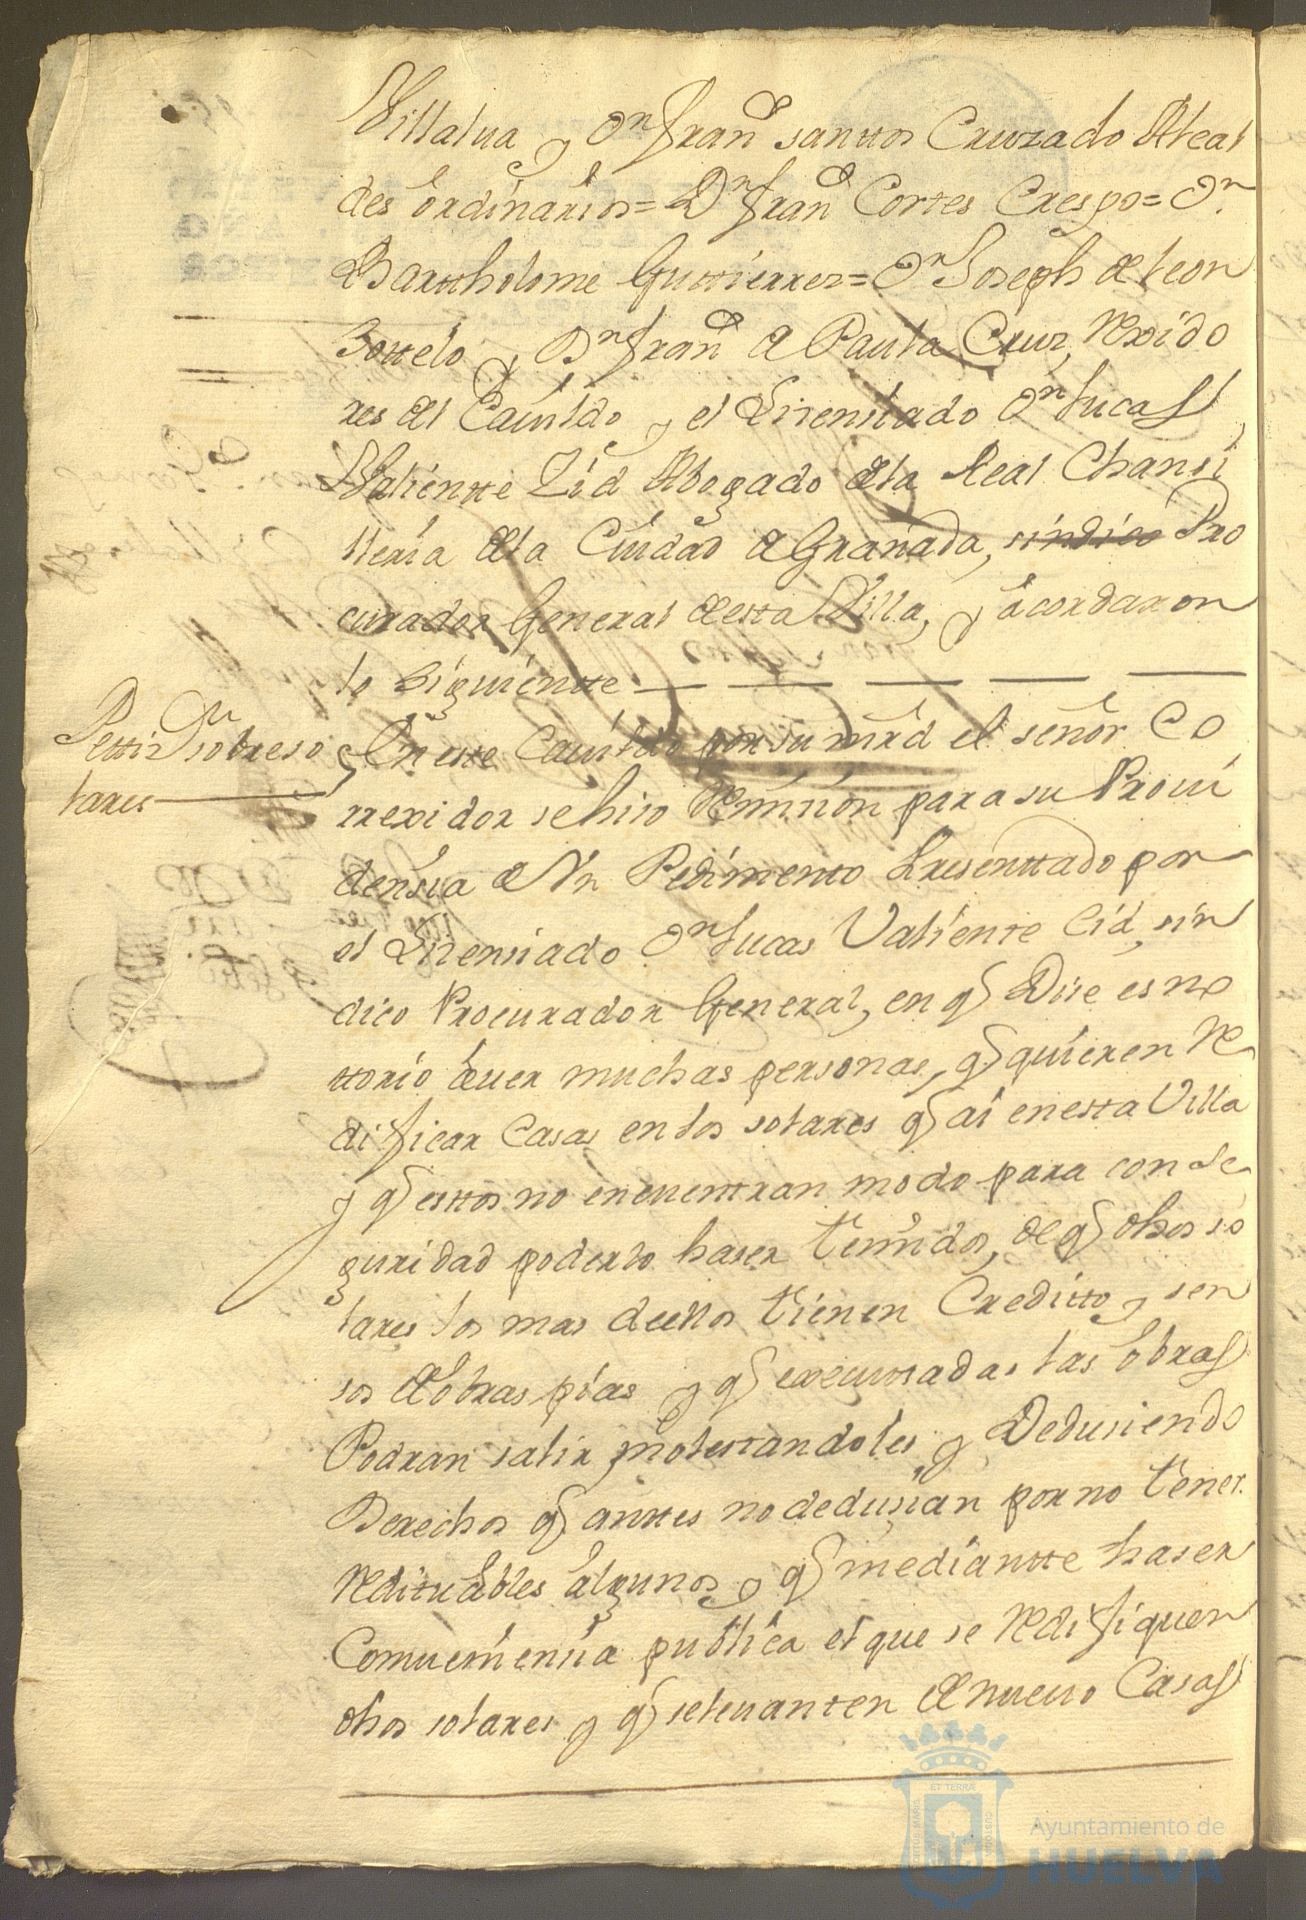 Villalua y Dn Franco santtos Cruzado Alcal
des ordinarios= Dn Franco Cortes Crespo= Dn
Bartthôlome Guttierrez= Dn Joseph de leon
Sottelo y Dn Franco de Paula Cruz, Rexido
res del Cauildo y el Lisensiado Dn Lucas
Valientte Zid Abogado de la Real Chansi
lleria de la Ciudad de Granada, sindico Pro
curador General de esta Villa, y acordaron
lo siguientte
Pettizn sobre so
lares
En este Cauildo por su mrd el señor Co
rrexidor se hiso Remision para su Proui
densia de Vn Pedimento Presenttado por
el Lisensiado Dn Lucas Valiente Cid, sin
dico Procurador General, en q Dise es no
ttorio auer muchas personas, q quieren Re
dificar Casas en los solares q ai en esta Villa
y q esttos no encuentran modo para con se
guridad poderlo haser temidos, de q dhos so
lares los mas de ellos tienen Creditto y sen
sos de obras pias y q executadas las obras
Podran salir molestandoles y Dedusiendo
Derechos q anttes no dedusian por no tener
Redituables algunos y q mediantte haser
Comueniensia publica el que se Redifiquen
dhos solares y q se leuanten de nueuo Casas
ET TERRÆ
PORTUS MARIS
CUSTODIA
Ayuntamiento de
HUELVA